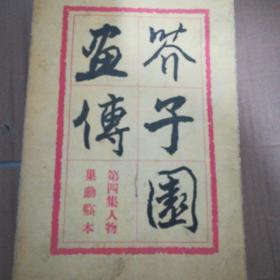 芥子園
畫傳
第四集人物
巢勳臨本